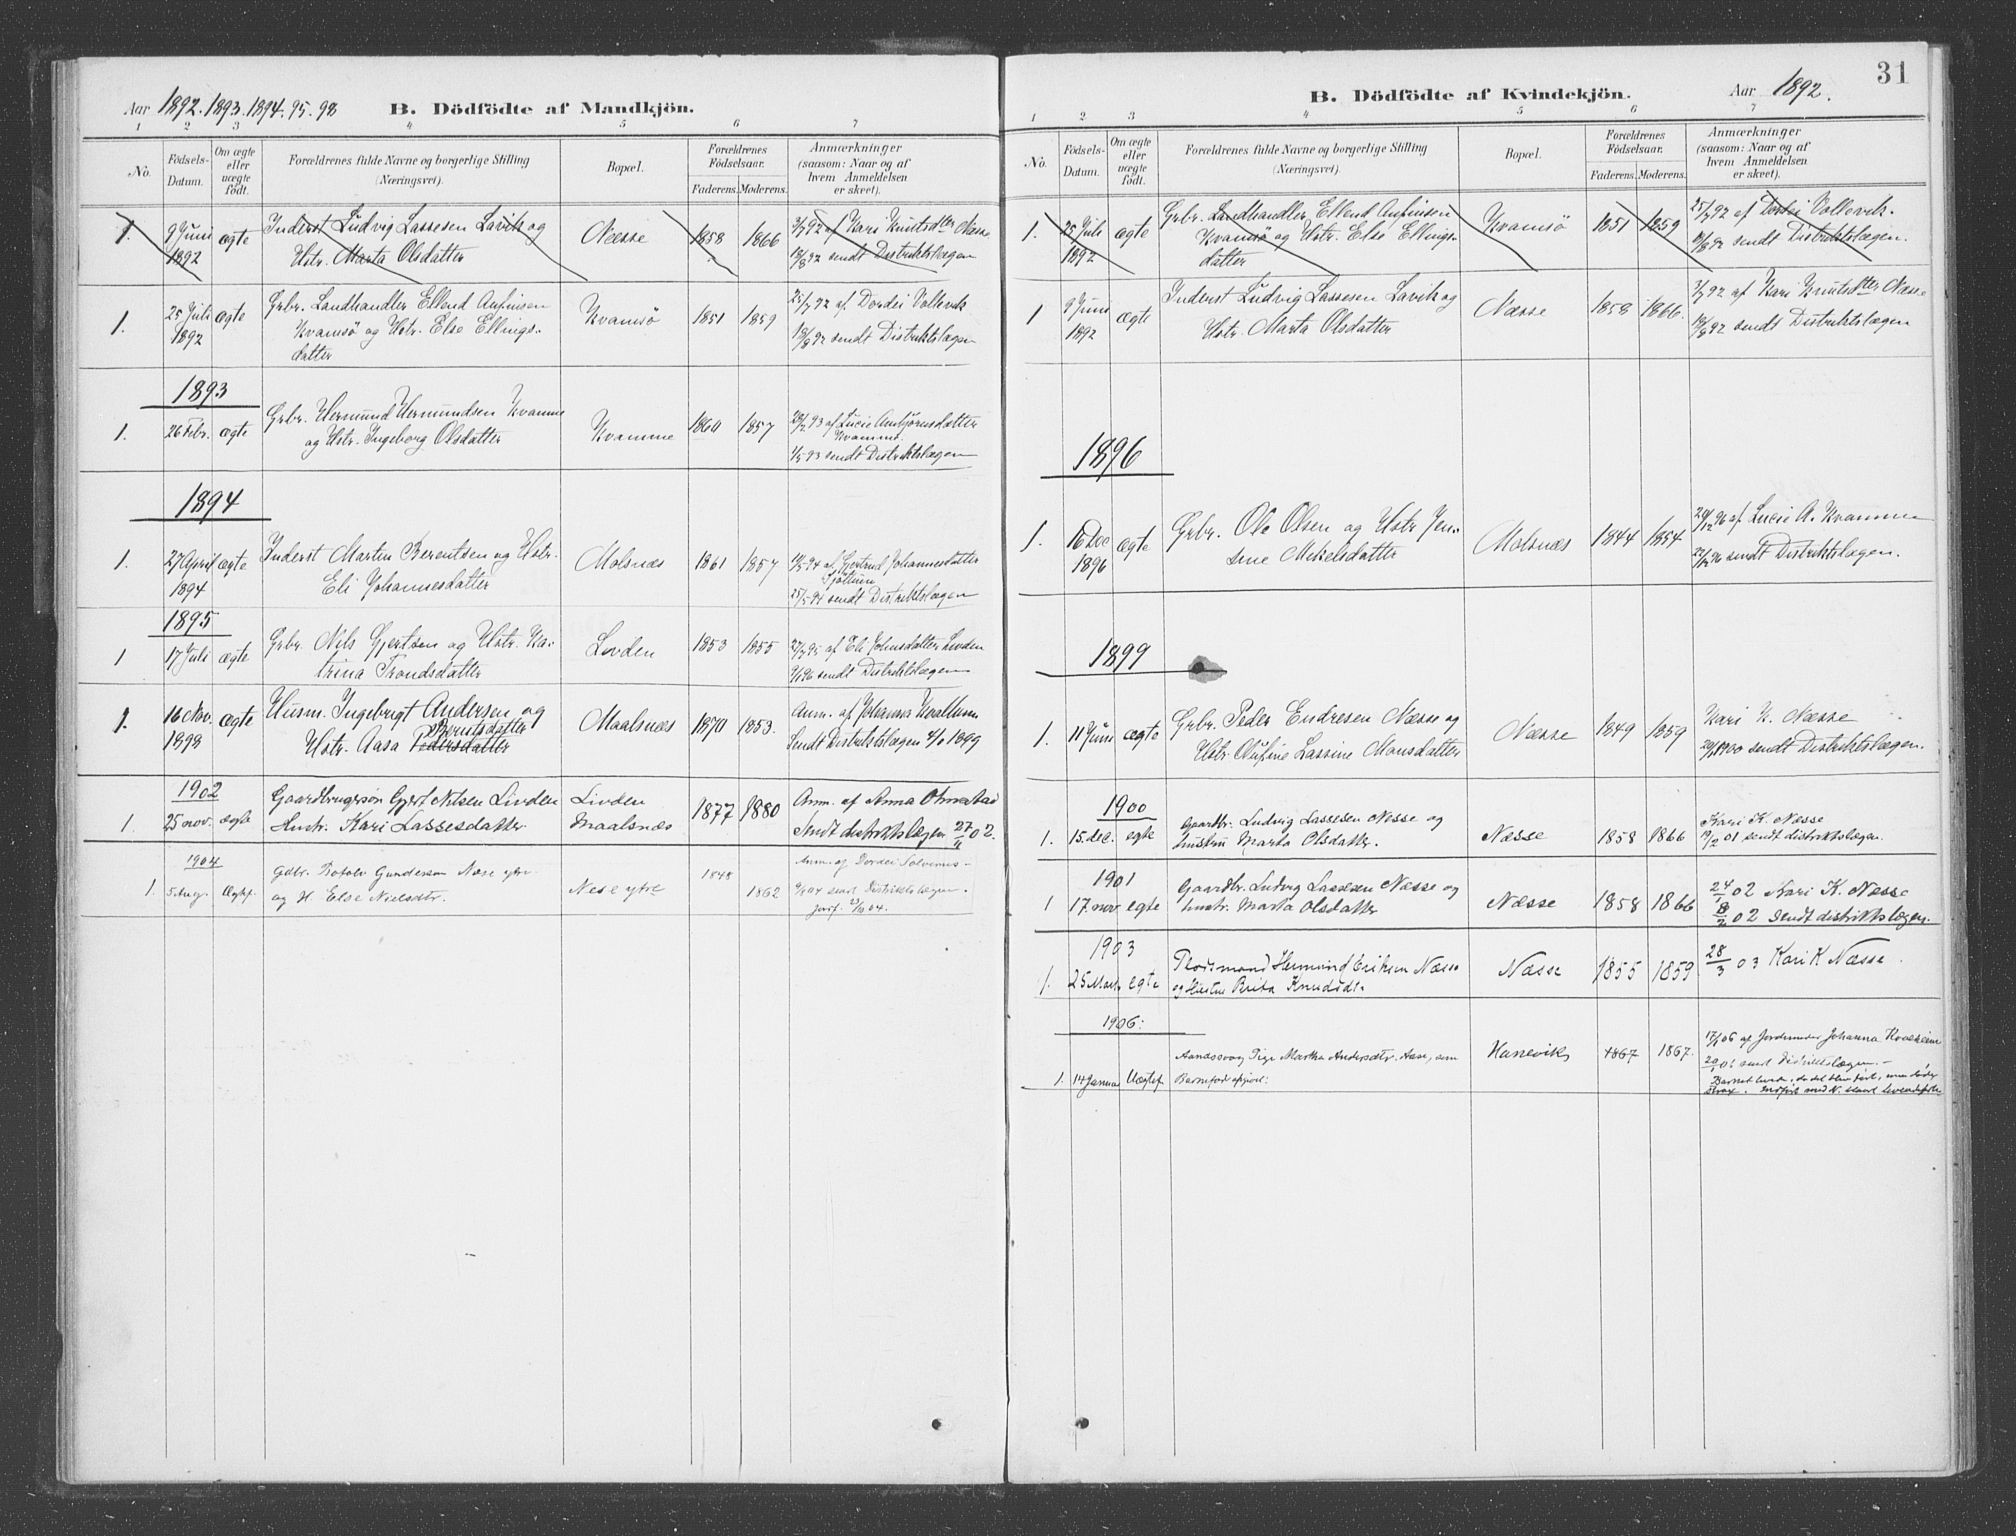 Aar 1892. 1893. 1894. 95. 98 B. Dödfödte af Mandkjön.
1 2 3 4 5 6 7
No. Födsels-Datum. Om ægte eller uægte födt. Forældrenes fulde Navne og borgerlige Stilling (Næringsvei). Bopæl. Forældrenes Födselsaar. Faderens. Moderens. Anmærkninger (saasom: Naar og af hvem Anmeldelsen er skeet).
1. 9 Juni ægte Inderst Ludvig Lassesen Lavik og Næsse 1858 1866 3/7 92 af Kari Knutsdtter Næsse
1892 Hstr. Marta Olsdatter 18/8 92 sendt Distriktslægen
1. 25 Juli ægte Grbr. Landhandler Ellend Anfinsen Kvamsö 1851 1859 25/7 92 af Dordei Vollevik
1892 Kvamsö og Hstr. Else Ellings- 18/8 92 sendt Distriktslægen
datter
1893
1. 26 Febr. ægte Grbr. Hermund Hermundsen Kvamme Kvamme 1860 1857 28/2 93 af Lucie Anbjörnsdatter
og Hstr. Ingeborg Olsdatter Kvamme.
1/5 93 sendt Distriktslægen
1894
1. 27 April ægte Inderst Martin Berentsen og Hstr. Molsnæs 1861 1857 af Gjertrud Johannesdatter
1894 Eli Johannesdatter
25/5 94 sendt Distriktslægen
1895
1 17 Juli ægte Grbr. Nils Gjertsen og Hstr. Ka- Lovden 1853 1855 27/7 95 af Eli Johnsdatter Lovden
trina Trondsdatter 9/1 96 sendt Distriktslægen
1. 16 Nov. ægte Husm. Ingebrigt Andersen og Maalsnæs 1870 1853. Anm. af Johanna Kvallum
1898 Hstr. Aasa Pedersdatter Berntsdatter Sendt Distriktslægen 4/2 1899
1902
1. 25 nov. ægte Gaardbrugersön Gjert Nilsen Livden Livden 1877 1880 Anm. af Anna Omestad
Hustr. Kari Lassesdatter Maalsnæs Sendt distriktslægen 27/11 02.
1904
1. 5 Aug. Ægtef. Gdbr. Botolv Gunderson Nese ytre Nese ytre 1848 1862 Anm. af Dordei
og H. Else Nielsdtr. 04 sendt Distriktslægen.
04.
31
B. Dödfödte af Kvindekjön. Aar 1892.
1 2 3 4 5 6 7
No. Födsels-Datum. Om ægte eller uægte födt. Forældrenes fulde Navne og borgerlige Stilling (Næringsvei). Bopæl. Forældrenes Födselsaar. Faderens. Moderens. Anmærkninger (saasom: Naar og af hvem Anmeldelsen er skeet).
1. 25 Juli ægte Grbr. Landhandler Ellend Anfinsen Kvamsö 1851 1859 25/7 92 af Dordei Vollevik.
1892 Kvamsö og Hstr. Else Ellings- 18/8 92 sendt Distriktslægen.
datter
1 9 Juni ægte Inderst Ludvig Lassesen Lavik og Næsse 1858 1866. 3/7 92 af Kari Knutsdtter Næsse
1892 Hstr. Marta Olsdatter 18/8 92 sendt Distriktslægen
1896
1. 16 Dec ægte Grbr. Ole Olsen og Hstr Jen- Molsnæs 1844 1854 20/12 96 af Lucie A. Kvamme
1896 sine Mikelsdatter 22/12 96 sendt Distriktslægen.
1899
1. 11 Juni ægte Grbr. Peder Endresen Næsse og Næsse 1849 1859 Kari K. Næsse
Hstr. Nufine Lassine Monsdatter 1900 sendt Distriktslægen.
1900
1. 15. dec. egte Gaardbr. Ludvig Lassesen Nesse og Næsse 1858 1866 Kari K. Næsse
hustru Marta Olsdatter. 19/2 01 sendt distriktslægen.
1901
1 17. nov egte Gaardbr. Ludvig Lassesen Næsse og Næsse 1858 1866 24/1 02 Kari K. Næsse
hustr. Marta Olsdatter 8/2 02 Sendt distriktslægen.
1903
1. 25 Marts egte Plodsmand Hermund Eriksen Næsse Næsse 1855 1859 28/3 03 Kari K Næsse.
og Hustru Brita Knudsdt.
1906:
1. 14 Januar Uægtef. Aandssvag Pige Martha Andersdtr. Aase, som Hanevik 1867 1867. 17/1 06 af Jordemoder Johanna
Barnefar opgivet: 20/1 06 sendt Distriktslægen.
Barnet levde, da det blev födt, men döde
strax. Indført med N. blandt levendefödte